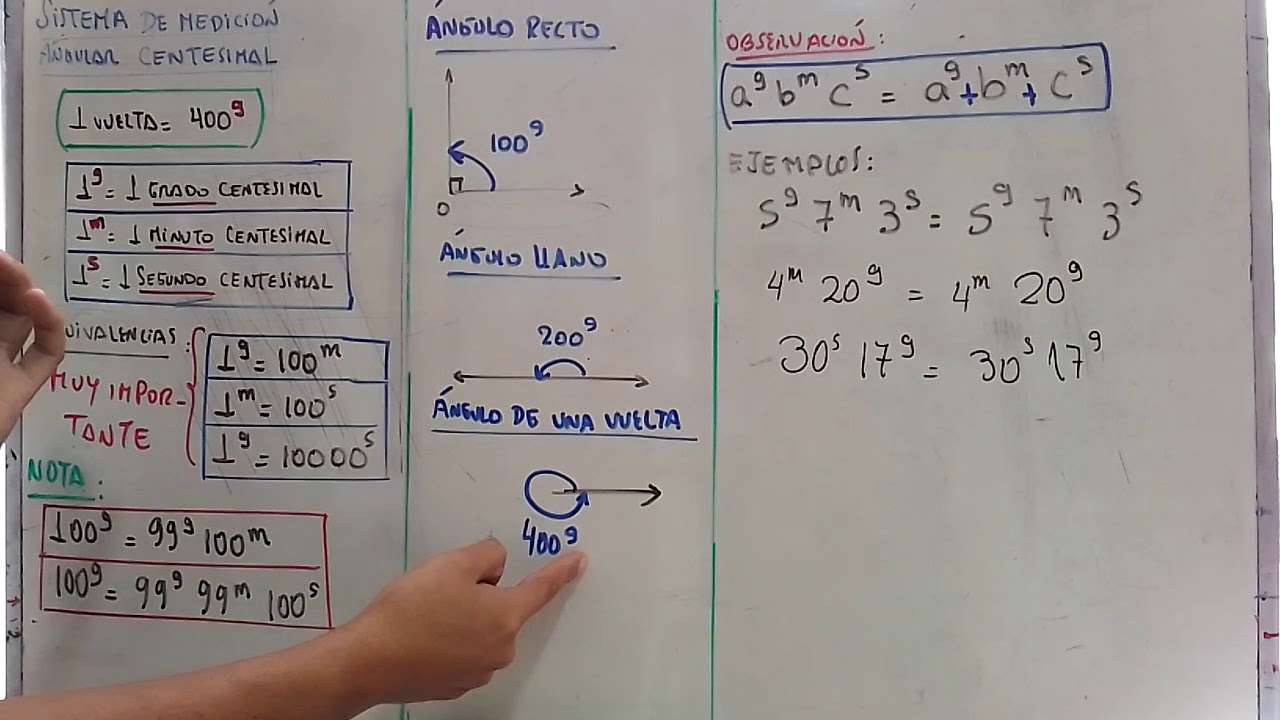 SISTEMA DE MEDICIÓN
ANGULAR CENTESIMAL
1 VUELTA = 400ᵍ
1ᵍ = 1 GRADO CENTESIMAL
1ᵐ = 1 MINUTO CENTESIMAL
1ˢ = 1 SEGUNDO CENTESIMAL
MUY IMPOR-
TANTE
1ᵍ = 100ᵐ
1ᵐ = 100ˢ
1ᵍ = 10000ˢ
NOTA:
100ᵍ = 99ᵍ 100ᵐ
100ᵍ = 99ᵍ 99ᵐ 100ˢ
ÁNGULO RECTO
100ᵍ
O
ÁNGULO LLANO
200ᵍ
ÁNGULO DE UNA VUELTA
400ᵍ
OBSERVACIÓN:
aᵍ bᵐ cˢ = aᵍ + bᵐ + cˢ
EJEMPLOS:
5ᵍ 7ᵐ 3ˢ = 5ᵍ 7ᵐ 3ˢ
4ᵐ 20ᵍ = 4ᵐ 20ᵍ
30ˢ 17ᵍ = 30ˢ 17ᵍ